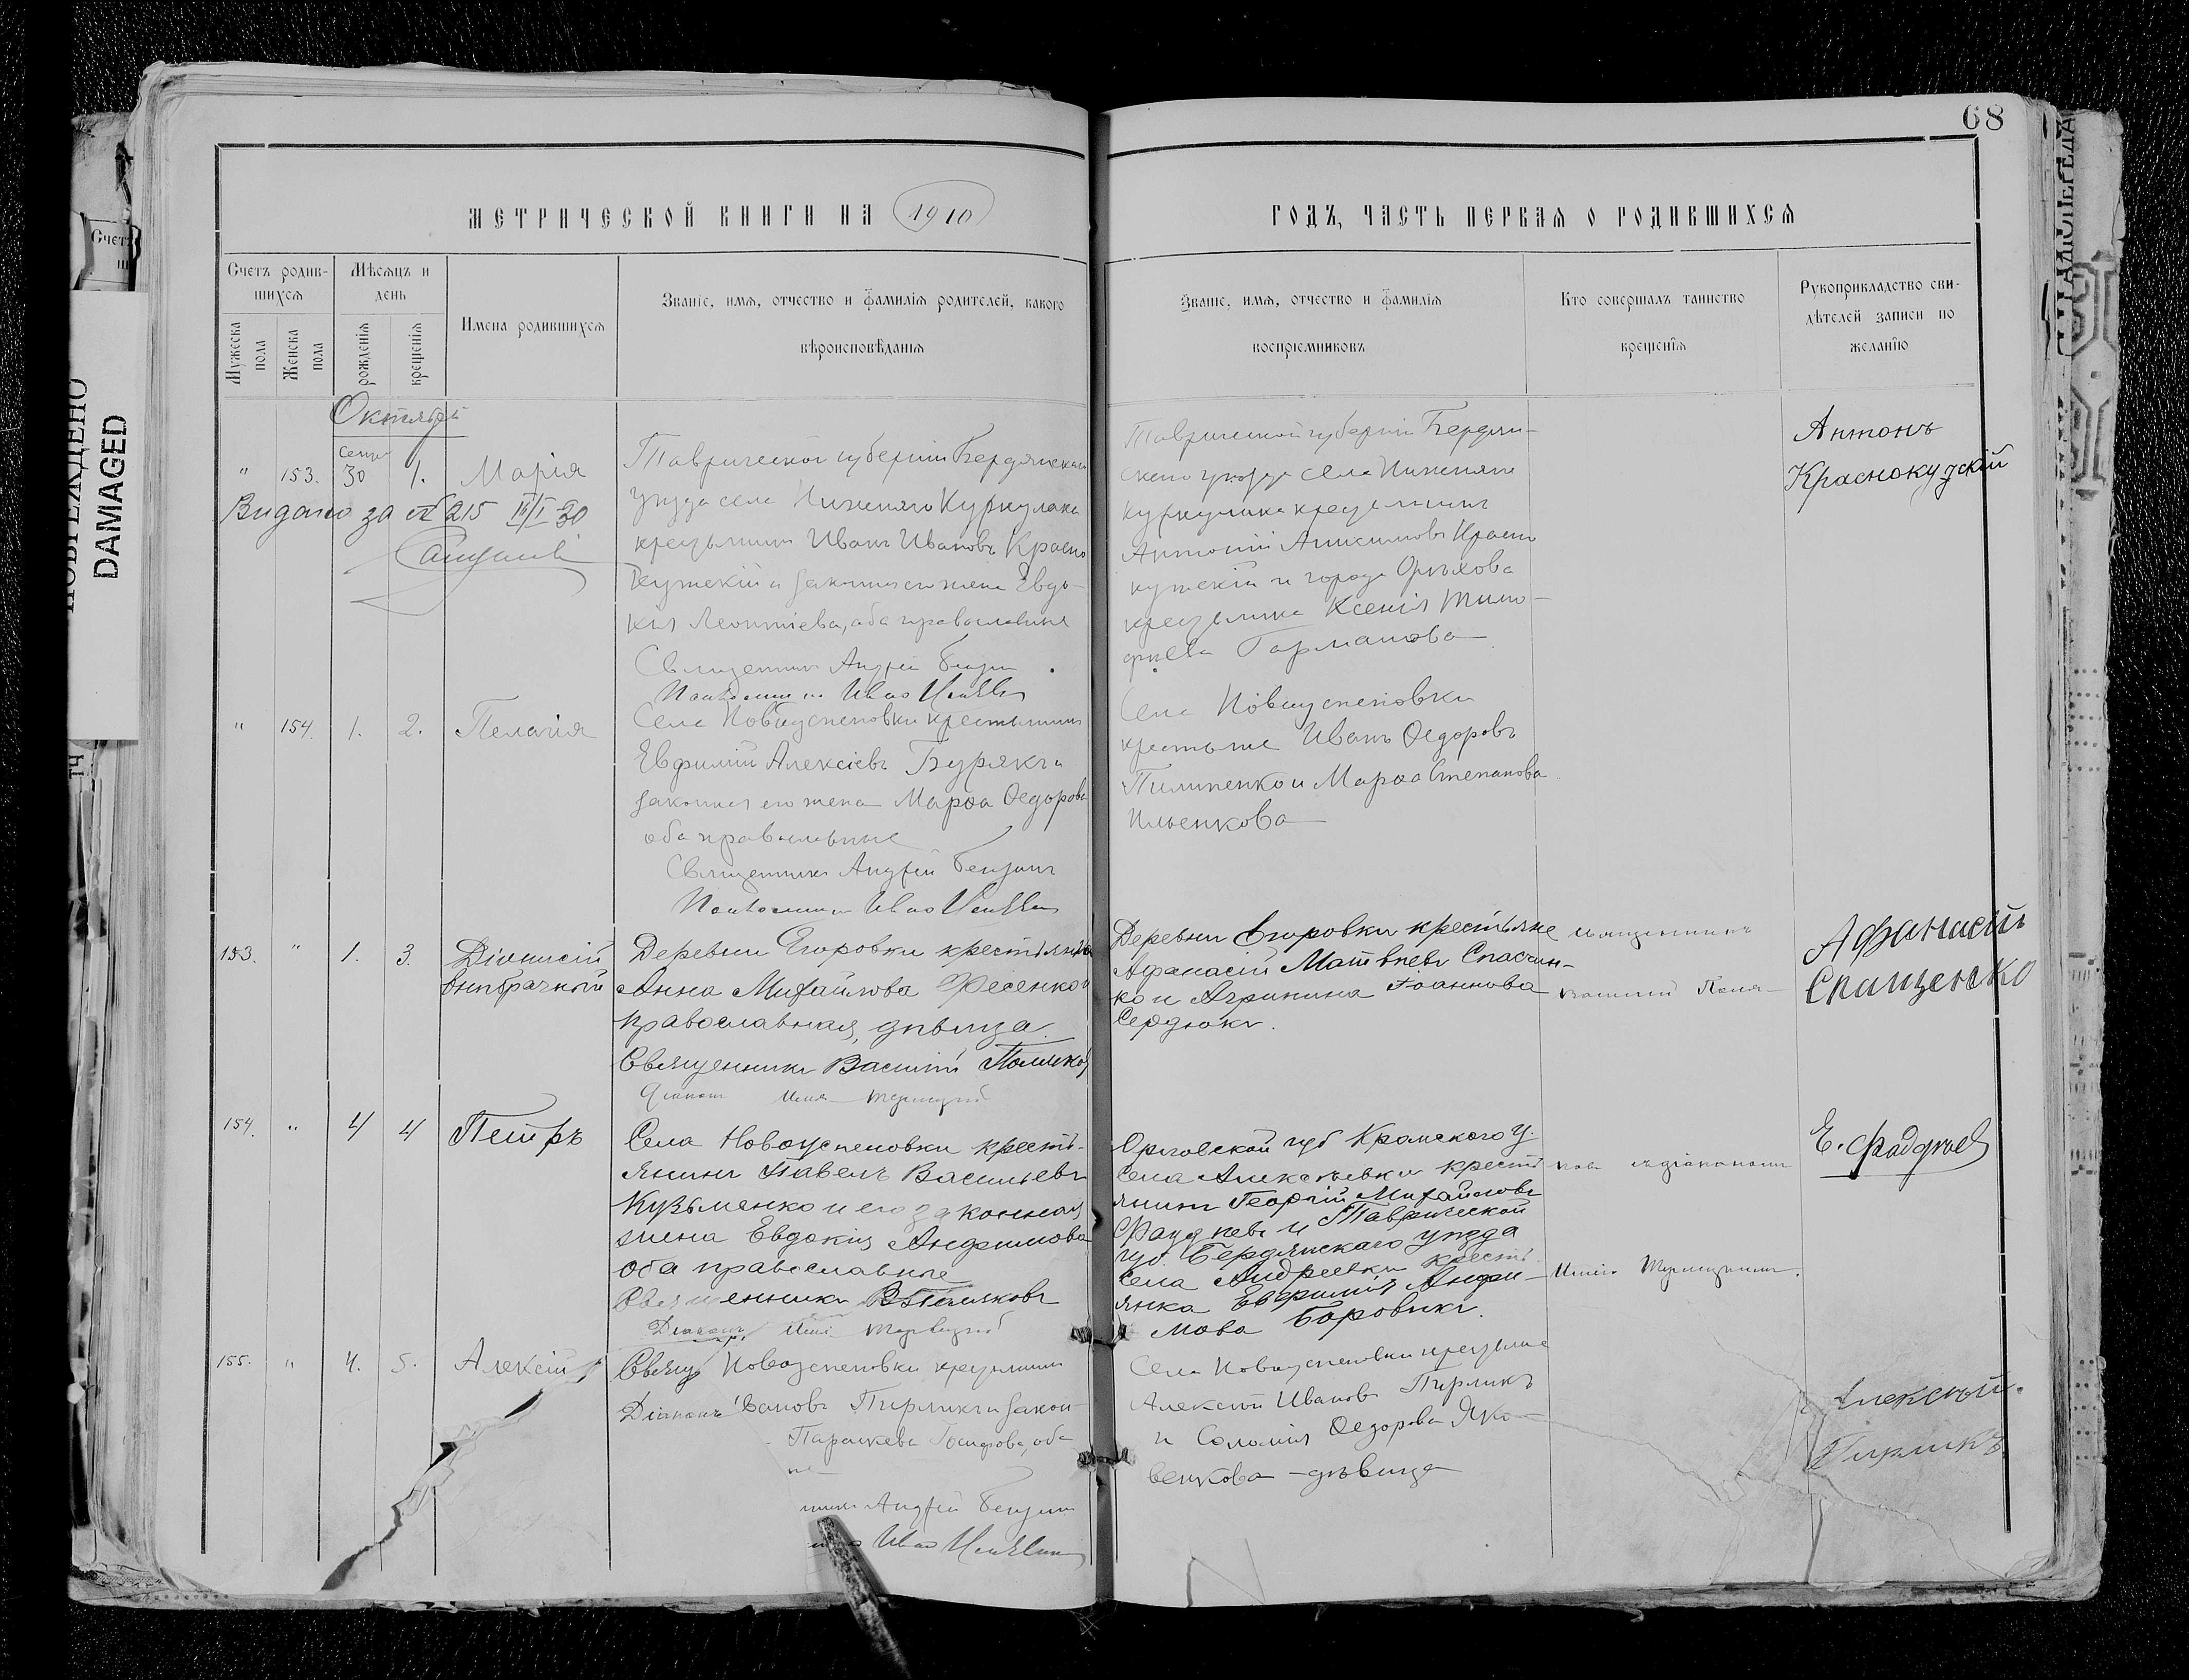 68
МЕТРИЧЕСКОЙ КНИГИ НА 1910
ГОДЪ, ЧАСТЬ ПЕРВАЯ О РОДИВШИХСЯ
Счетъ родив-
шихся
Мужеска пола
Женска пола
Мѣсяцъ и
день
рожденія
крещенія
Имена родившихся
Званіе, имя, отчество и фамилія родителей, какого
вѣроисповѣданія
Званіе, имя, отчество и фамилія
воспріемниковъ
Кто совершалъ таинство
крещенія
Рукоприкладство сви-
дѣтелей записи по
желанію
ПОВРЕЖДЕНО
DAMAGED
Октябрь
" 153. Сент. 30 1. Марія
Видано за № 215 30
Таврической губерніи Бердянскаго
уѣзда села Нижняго Куркулака
крестьянинъ Иванъ Ивановъ Красно
кутскій и законная его жена Евдо-
кія Леонтіева, оба православные
Священникъ Андрей
Псаломщикъ Иван
Таврической губерніи Бердян-
скаго уѣзда села Нижняго
Куркулака крестьянинъ
Антоній Анисимовъ Красно
кутскій и города Орѣхова
крестьянка Ксенія Тимо-
фѣева
Антонъ
Краснокудскій
" 154. 1. 2. Пелагія
Села Новоуспеновки крестьянинъ
Евфимій Алексіевъ Бурякъ и
законная его жена Марѳа Ѳедорова
оба православные
Священникъ Андрей
Псаломщикъ Иван
Села Новоуспеновки
крестьяне Иванъ Ѳедоровъ
Пилипенко и Марѳа Степанова
Ильенкова
153. " 1. 3. Діонисій
внѣбрачный
Деревни Егоровки крестьянка
Анна Михайлова Фесенко
православная, дѣвица.
Священникъ Василій Поляковъ
Діаконъ Илія
Деревни Егоровки крестьяне
Афанасій Матвѣевъ Спащен-
ко и Агрипина Іоаннова
Сердюкъ.
священникъ
Василій Поля-
Афанасій
Спащенско
154. " 4 4 Петръ
Села Новоуспеновки кресть-
янинъ Павелъ Васильевъ
Кузьменко и его законная
жена Евдокія Анфимова
оба православные
Священникъ В Поляковъ
Діаконъ Илія
Орловской губ Кромскаго у.
села Алексѣевки крестъ
янинъ Георгій Михайловъ
Фадѣевъ и Таврической
губ. Бердянскаго уѣзда
села Андреевки кресть
янка Евфимія Анфи-
мова Боровикъ.
ковъ съ діакономъ
Иліею
Е. Фадѣевъ
155. " 4. 5. Алексій
Свящ Новоуспеновки крестьянинъ
Діаконъ Ивановъ Пирликъ и закон-
Параскева Іосифова, оба
никъ Андрей
Иван
Села Новоуспеновки крестьяне
Алексій Ивановъ Пирликъ
и Соломія Ѳедорова Яко-
венкова - дѣвица
Алексѣй
Пирликъ